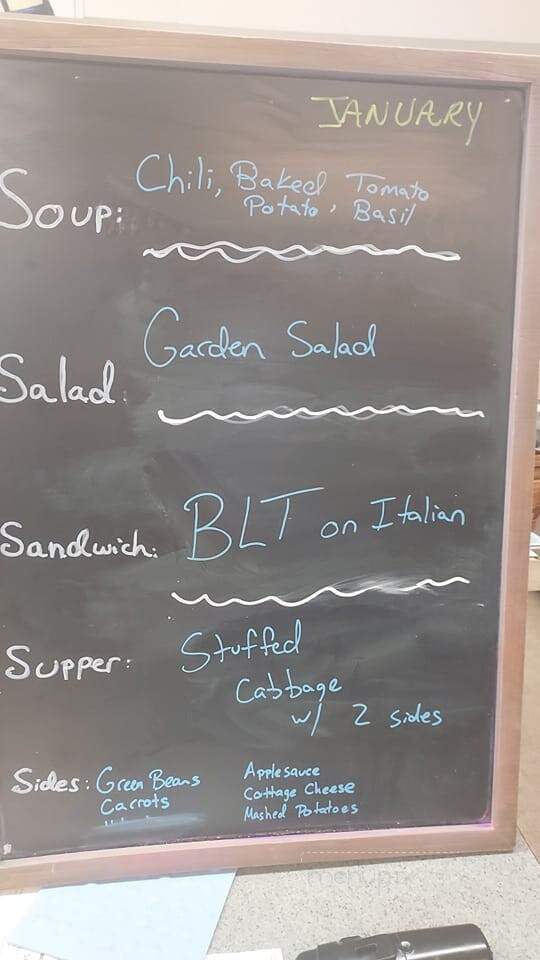 JANUARY
Soup: Chili, Baked Potato, Tomato Basil
Salad: Garden Salad
Sandwich: BLT on Italian
Supper: Stuffed
Cabbage
w/ 2 sides
Sides: Green Beans Applesauce
Carrots Cottage Cheese
Mashed Potatoes